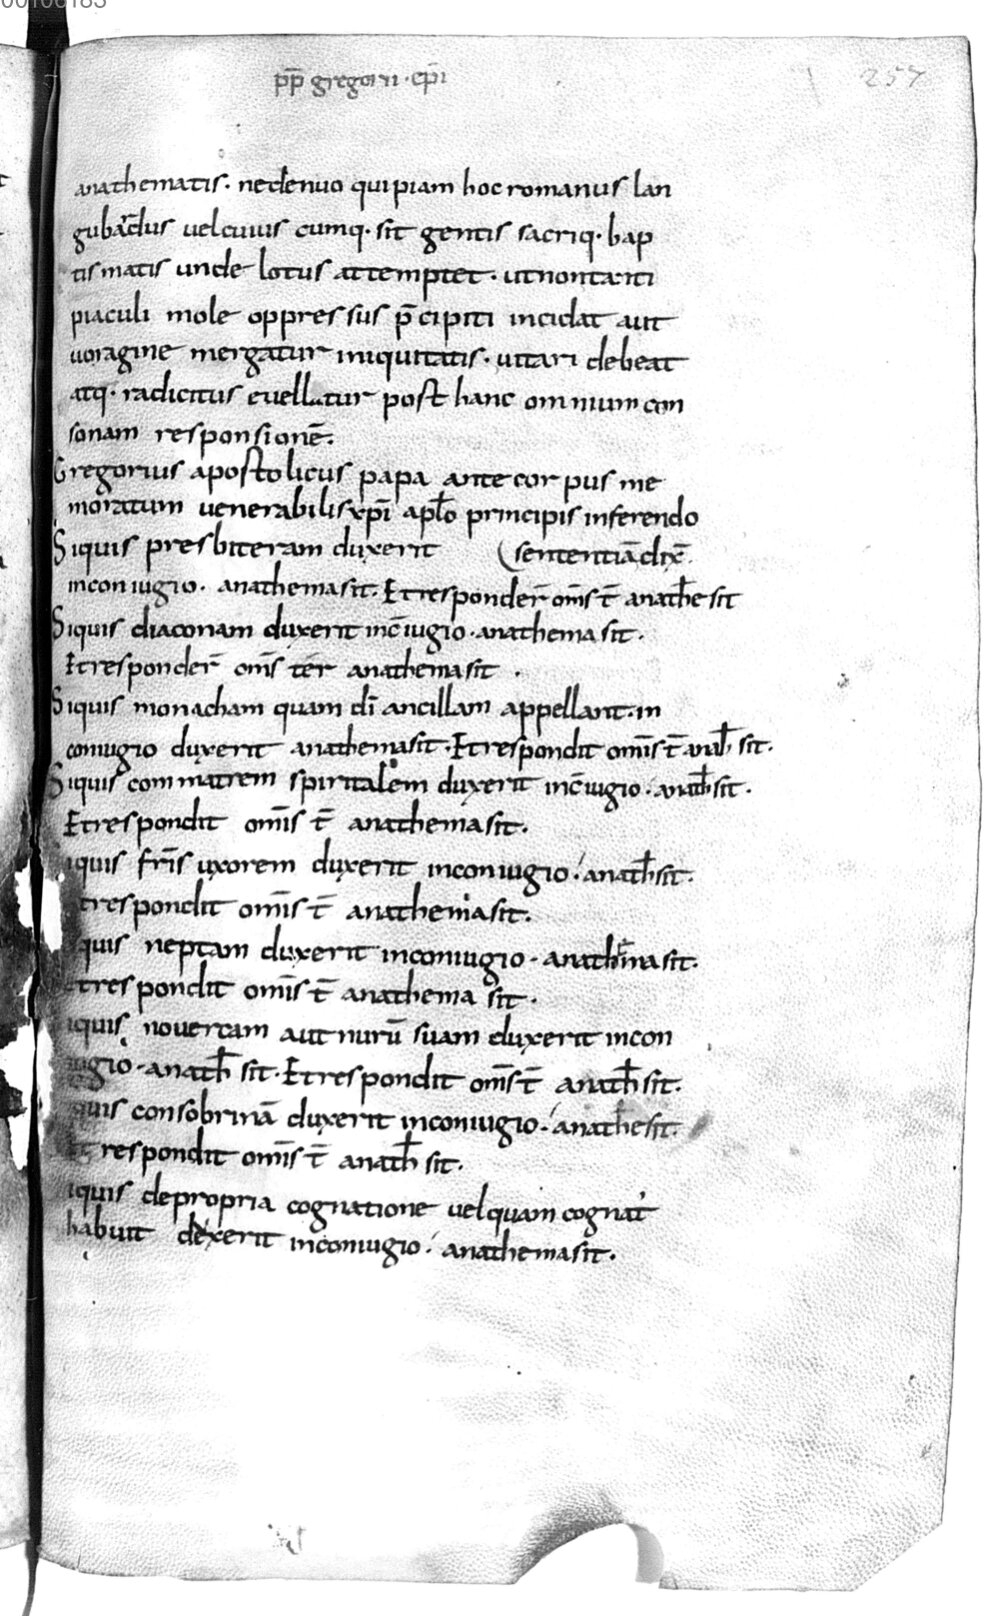 pp̄ gregorii · ep̄i
257
anathematis · nedenuo quipiam hoc romanus lan
gubardus uelcuius cumq · sit gentis sacriq · bap
tismatis unde lotus attemptet · utnontanti
piaculi mole oppressus p̄cipiti incidat aut
uoragine mergatur iniquitatis · uitari debeat
atq · radicitus euellatur post hanc omnium con
sonam responsionē.
Gregorius apostolicus papa ante corpus me
moratum uenerabilis xp̄i apl̄o principis inferendo
Siquis presbiteram duxerit (sententiā dix̄.
inconiugio · anathemasit · Etresponder̄ om̄s t̄ anath̄e sit
Siquis diaconam duxerit inc̄iugio · anathema sit ·
Etresponder̄ om̄s ter anathemasit ·
Siquis monacham quam dī ancillam appellant · in
coniugio duxerit anathemasit · Etrespondit om̄is t̄ anath̄ sit ·
Siquis commatrem spiritalem duxerit inc̄iugio · anath̄ sit ·
Etrespondit om̄is t̄ anathemasit ·
iquis fr̄is uxorem duxerit inconiugio · anath̄ sit ·
trespondit om̄is t̄ anathemasit ·
quis neptam duxerit inconiugio · anath̄masit ·
Etrespondit om̄is t̄ anathema sit ·
iquis nouercam aut nurū suam duxerit incon
iugio · anath̄ sit · Etrespondit om̄s t̄ anath̄ sit ·
quis consobrinā duxerit inconiugio · anath̄esit ·
Et respondit om̄is t̄ anath̄ sit ·
iquis depropria cognatione uelquam cognat'
habuit duxerit inconiugio · anathemasit ·